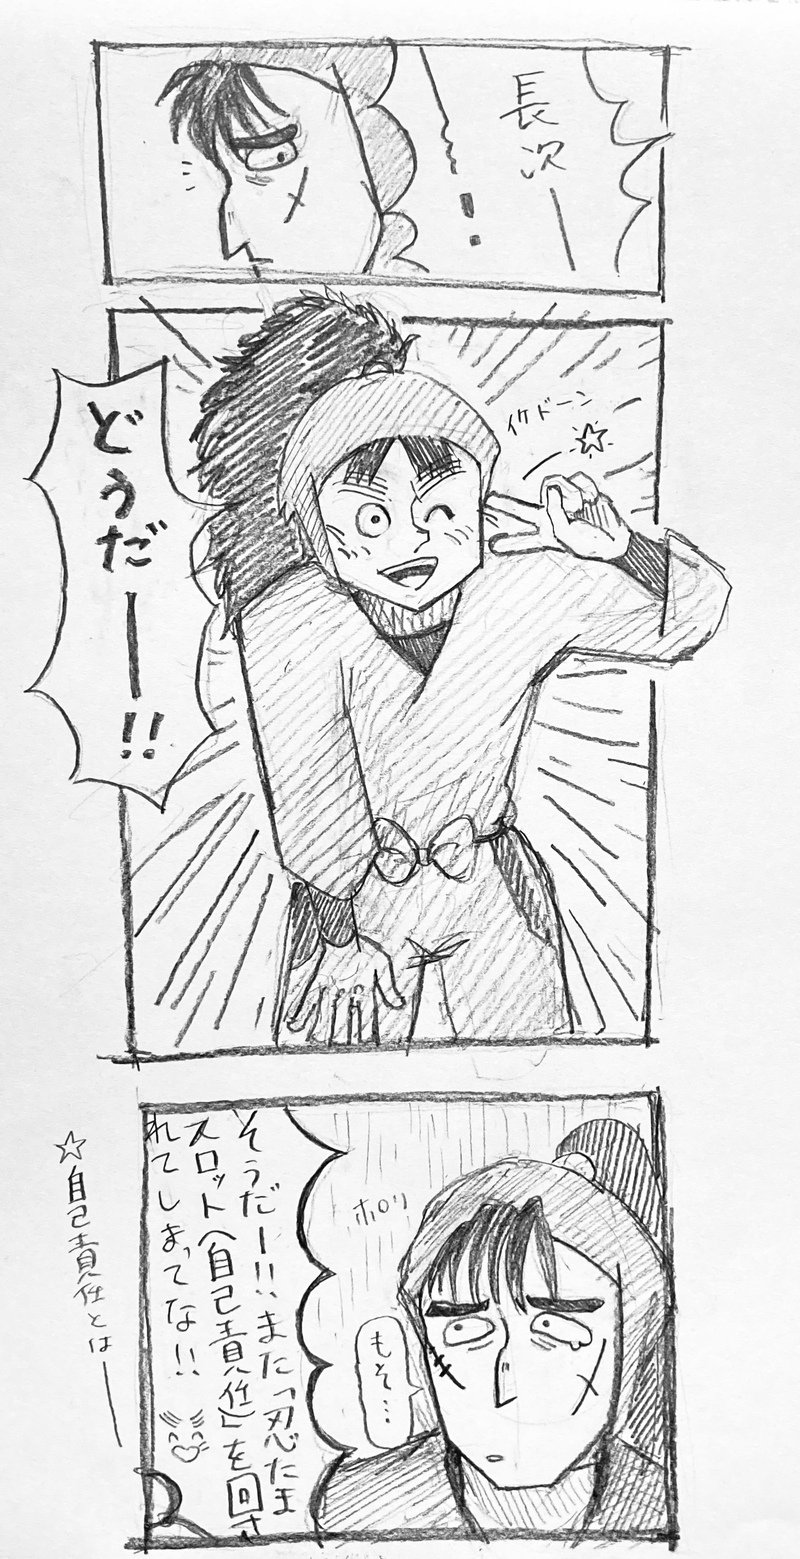 長次ー
ー!
イケドーン☆
どうだー!!
ホロリ
もそ…
そうだー!!また「忍たま
スロット(自己責任)を回さ
れてしまってな!!
☆自己責任とはー